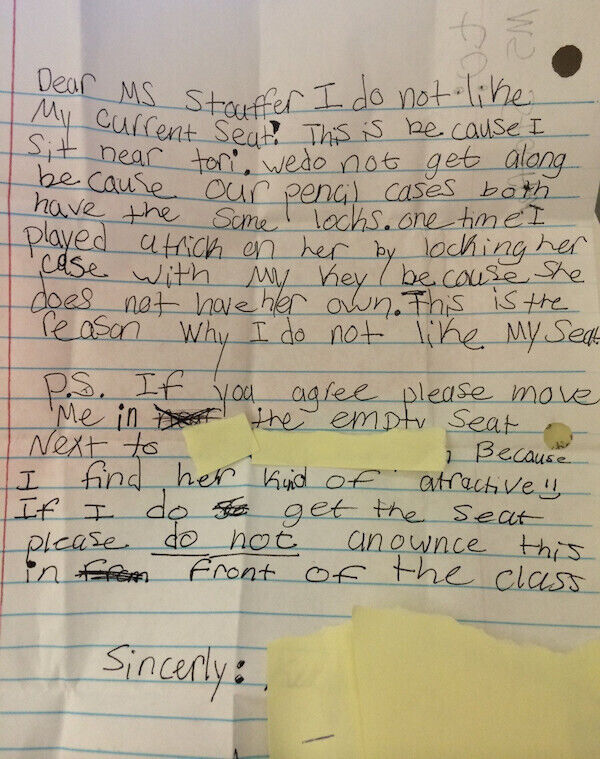 Dear MS Stouffer I do not like
My current Seat. This is because I
Sit near tori. wedo not get along
because our pencil cases both
have the same locks. one time I
played a trick on her by locking her
case with my key because She
does not have her own. This is the
reason Why I do not like My Seat
P.S. If you agree please move
Me in the empty Seat
Next to Because
I find her kind of atractive!!
If I do get the Seat
please do not anownce this
in front of the class
Sincerly: